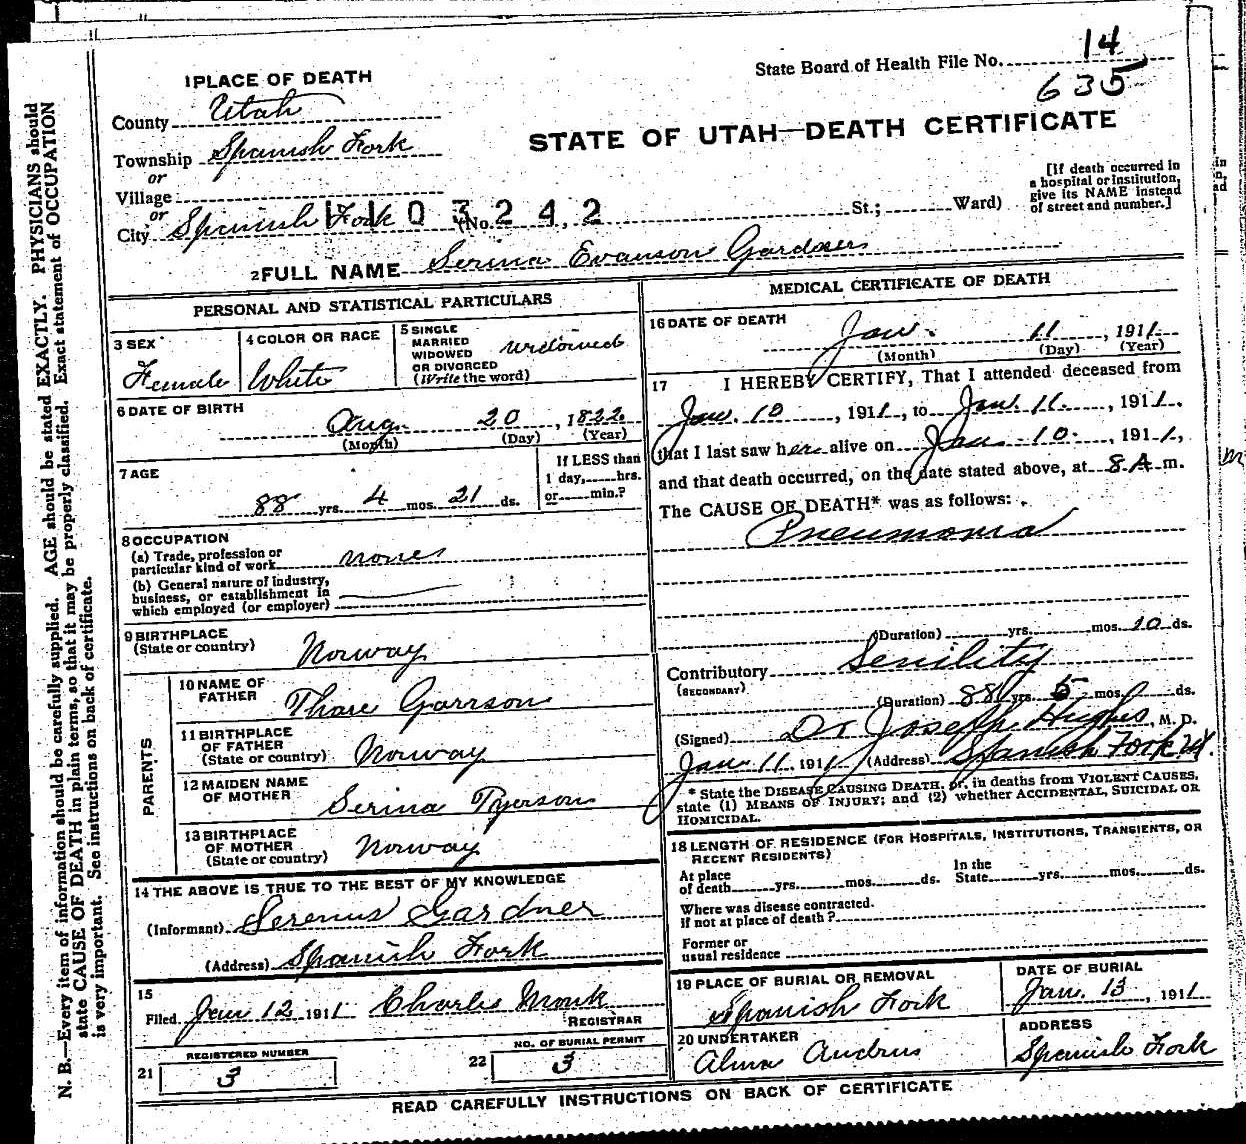 State Board of Health File No. 14
635
1 PLACE OF DEATH
County Utah
STATE OF UTAH—DEATH CERTIFICATE
Township Spanish Fork
or
Village
or
City Spanish Fork (No. , St.; Ward)
1103242
[If death occurred in
a hospital or institution,
give its NAME instead
of street and number.]
2 FULL NAME Serina Evanson Gardner
PERSONAL AND STATISTICAL PARTICULARS
3 SEX
Female
4 COLOR OR RACE
White
5 SINGLE
MARRIED
WIDOWED
OR DIVORCED
(Write the word)
widowed
6 DATE OF BIRTH
Aug. 20, 1822
(Month) (Day) (Year)
7 AGE
88 yrs. 4 mos. 21 ds.
If LESS than
1 day, hrs.
or min.?
8 OCCUPATION
(a) Trade, profession or
particular kind of work none
(b) General nature of industry,
business, or establishment in
which employed (or employer)
9 BIRTHPLACE
(State or country) Norway
PARENTS
10 NAME OF
FATHER Thare Garrson
11 BIRTHPLACE
OF FATHER
(State or country) Norway
12 MAIDEN NAME
OF MOTHER Serina Tyerson
13 BIRTHPLACE
OF MOTHER
(State or country) Norway
14 THE ABOVE IS TRUE TO THE BEST OF MY KNOWLEDGE
(Informant) Serenus Gardner
(Address) Spanish Fork
15
Filed Jan 12 1911 Charles Monk
REGISTRAR
REGISTERED NUMBER
21 3
NO. OF BURIAL PERMIT
22 3
MEDICAL CERTIFICATE OF DEATH
16 DATE OF DEATH
Jan. 11, 1911
(Month) (Day) (Year)
17 I HEREBY CERTIFY, That I attended deceased from
Jan. 10, 1911, to Jan. 11, 1911,
that I last saw her alive on Jan. 10, 1911,
and that death occurred, on the date stated above, at 8 A. m.
The CAUSE OF DEATH* was as follows:
Pneumonia
(Duration) yrs. mos. 10 ds.
Contributory Senility
(SECONDARY)
(Duration) 88 yrs. 5 mos. ds.
(Signed) Dr Joseph Hughes, M. D.
Jan. 11, 1911 (Address) Spanish Fork
* State the DISEASE CAUSING DEATH, or, in deaths from VIOLENT CAUSES,
state (1) MEANS OF INJURY; and (2) whether ACCIDENTAL, SUICIDAL OR
HOMICIDAL.
18 LENGTH OF RESIDENCE (FOR HOSPITALS, INSTITUTIONS, TRANSIENTS, OR
RECENT RESIDENTS)
At place
of death yrs. mos. ds.
In the
State yrs. mos. ds.
Where was disease contracted.
if not at place of death?
Former or
usual residence
19 PLACE OF BURIAL OR REMOVAL
Spanish Fork
DATE OF BURIAL
Jan. 13, 1911
20 UNDERTAKER
Alma Andrus
ADDRESS
Spanish Fork
READ CAREFULLY INSTRUCTIONS ON BACK OF CERTIFICATE
N. B.—Every item of information should be carefully supplied. AGE should be stated EXACTLY. PHYSICIANS should
state CAUSE OF DEATH in plain terms, so that it may be properly classified. Exact statement of OCCUPATION
is very important. See instructions on back of certificate.